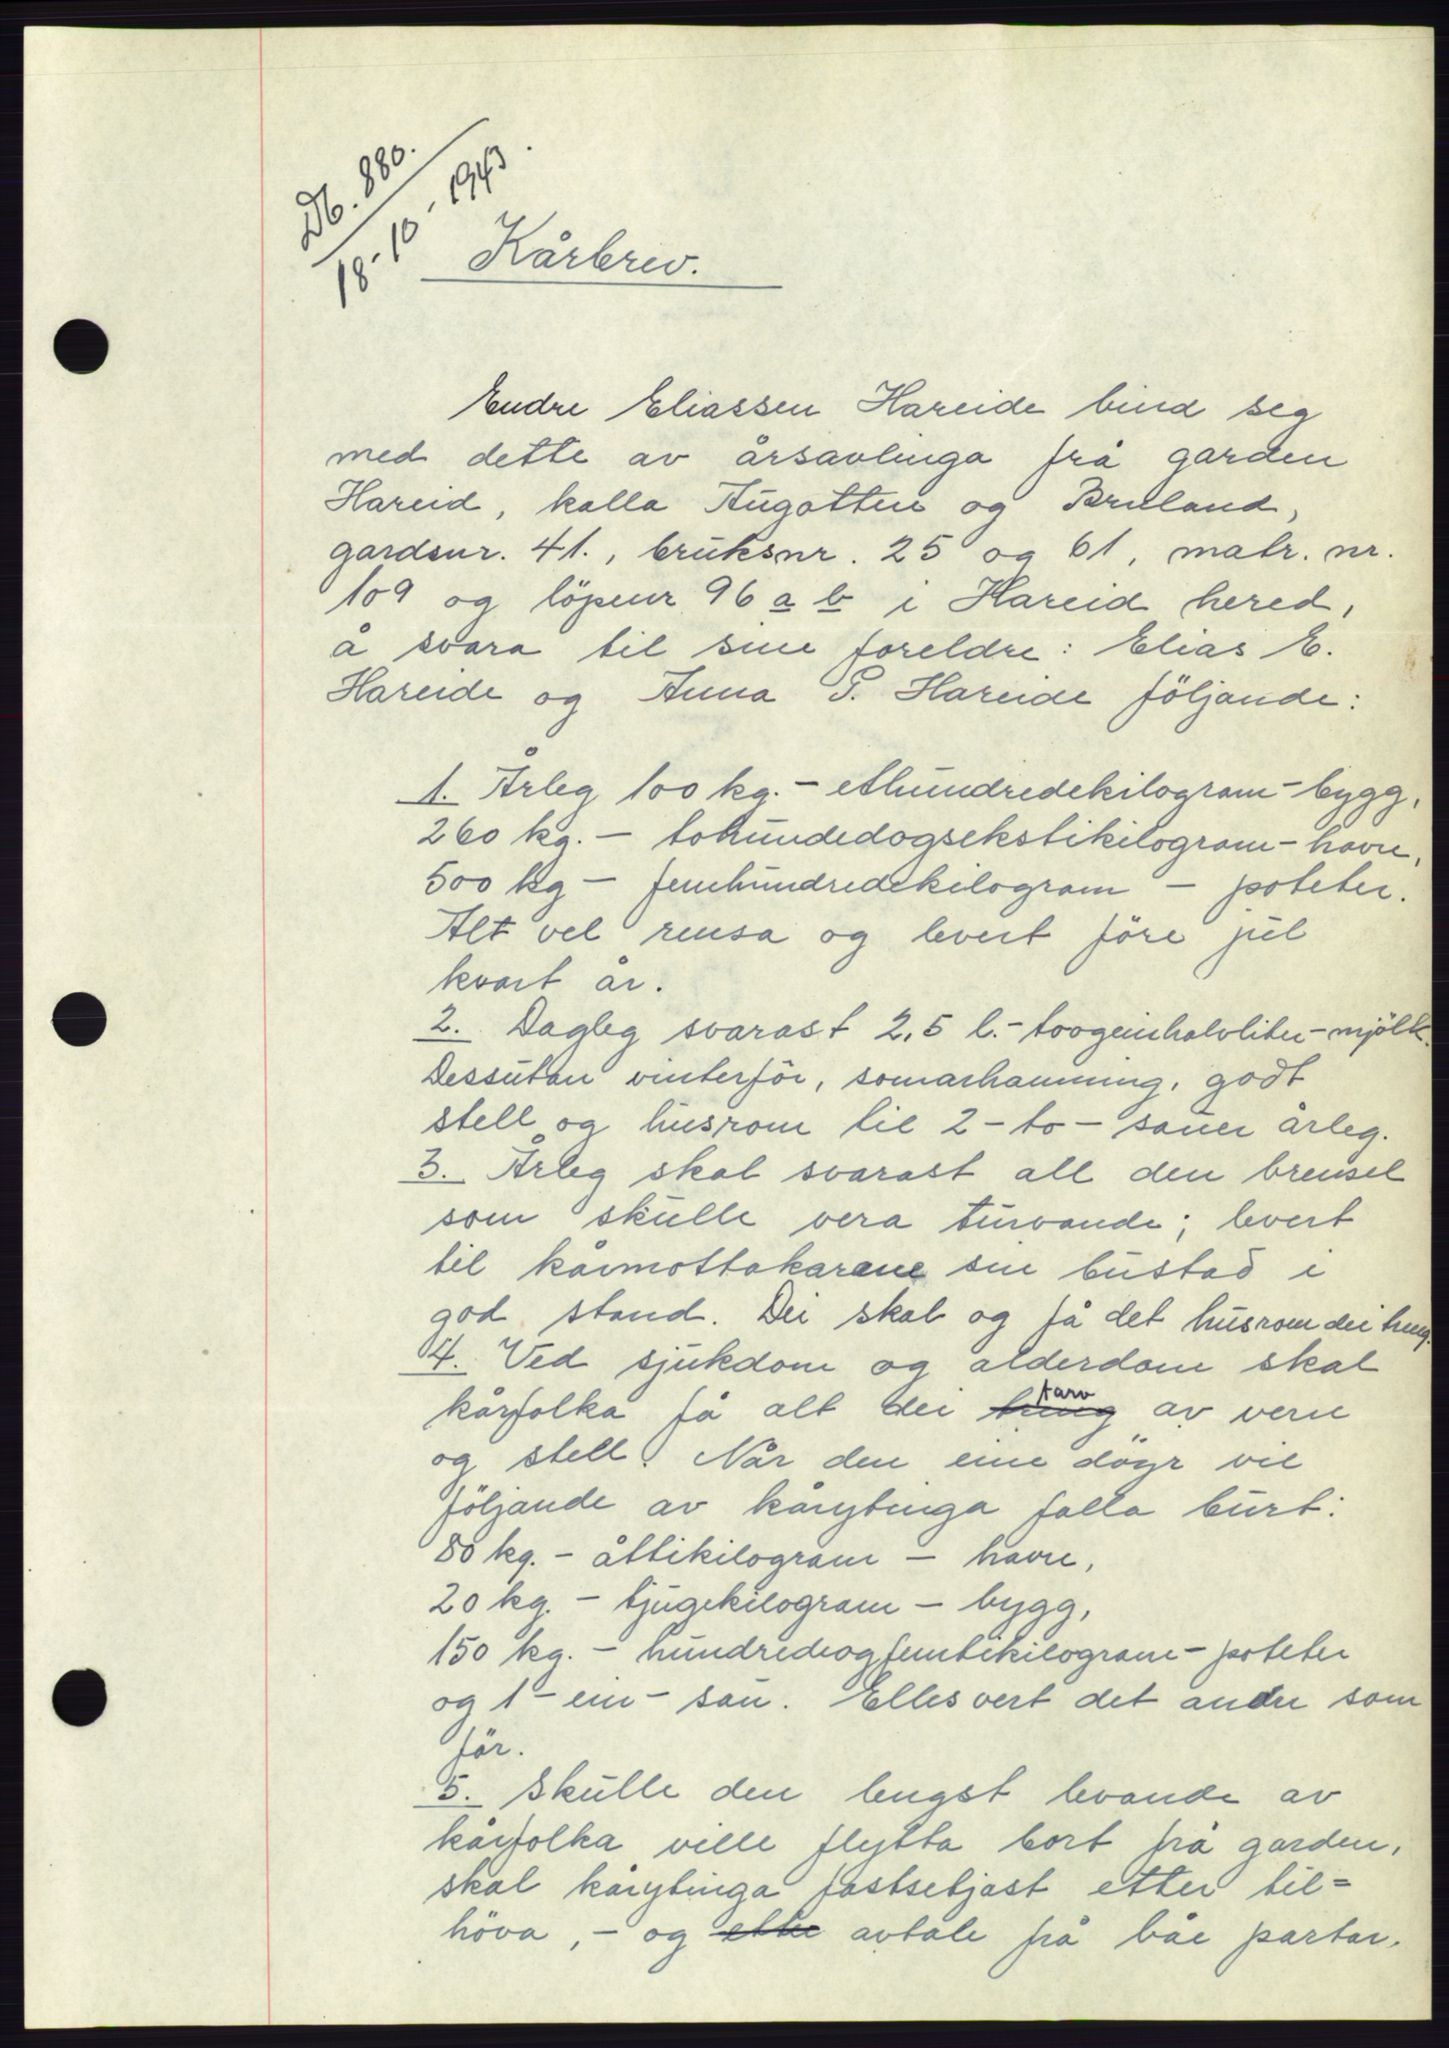 Db. 880.
18-10-1943.
Kårbrev.
Endre Eliassen Hareide bind seg
med dette av årsavlinga frå garden
Hareid, kalla Augotten og Bruland,
gardsnr. 41., bruksnr. 25 og 61, matr. nr.
109 og löpenr 96 a b i Hareid hered,
å svara til sine foreldre: Elias E.
Hareide og Anna P. Hareide följande:
1. Årleg 100 kg. - etthundredekilogram - bygg,
260 kg. - tohundedogsekstikilogram - havre,
500 kg - femhundredekilogram - poteter.
Alt vel rensa og levert före jul
kvart år.
2. Dagleg svarast 2,5 l. - toogeinhalvliter - mjölk.
Dessutan vinterfôr, somarhamning, godt
stell og husrom til 2 - to - sauer årleg.
3. Årleg skal svarast all den brensel
som skulle vera turvande; levert
til kårmottakarane sin bustad i
god stand. Dei skal og få det husrom dei treng.
4. Ved sjukdom og alderdom skal
kårfolka få alt dei treng tarv av verie
og stell. Når den eine döyr vil
följande av kårytinga falla burt:
80 kg. - åttikilogram - havre,
20 kg. - tjugekilogram - bygg,
150 kg. - hundredeogfemtikilogram - poteter
og 1 - ein - sau. Elles vert det andre som
för.
5. Skulle den lengst levande av
kårfolka ville flytta bort frå garden,
skal kårytinga fastsetjast etter til=
höva, - og etter avtale frå båe partar.